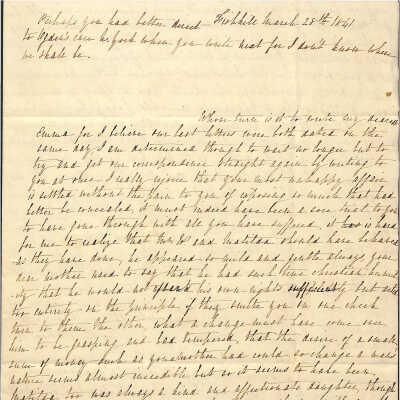 Perhaps you had better direct Fishkill March 28th 1841
to Ogden's care before when you write next for I don't know where
we shall be.
Whose turn is it to write my dearest
Emma for I believe our last letters were both dated on the
same day I am determined though to wait no longer but to
try and get our correspondence straight again by writing to
you at once I really rejoice that your most unhappy affair
is settled without the pain to you of exposing so much that had
better be concealed, it must indeed have been a sore trial to you
to have gone through with all you have suffered, it is hard
for me to realize that and Matilda should have behaved
as they have done, he appeared so mild and gentle always your
dear mother used to say that he had such true christian humil
ity that he would not his own rights sufficiently but acted
too entirely on the principle if they smite you on one cheek
turn to them the other, what a change must have come over
him to be grasping and bad tempered, that the desire of a small
sum of money such as your mother had could so change a man's
nature seems almost incredible but so it seems to have been,
Matilda too was always a kind and affectionate daughter, though